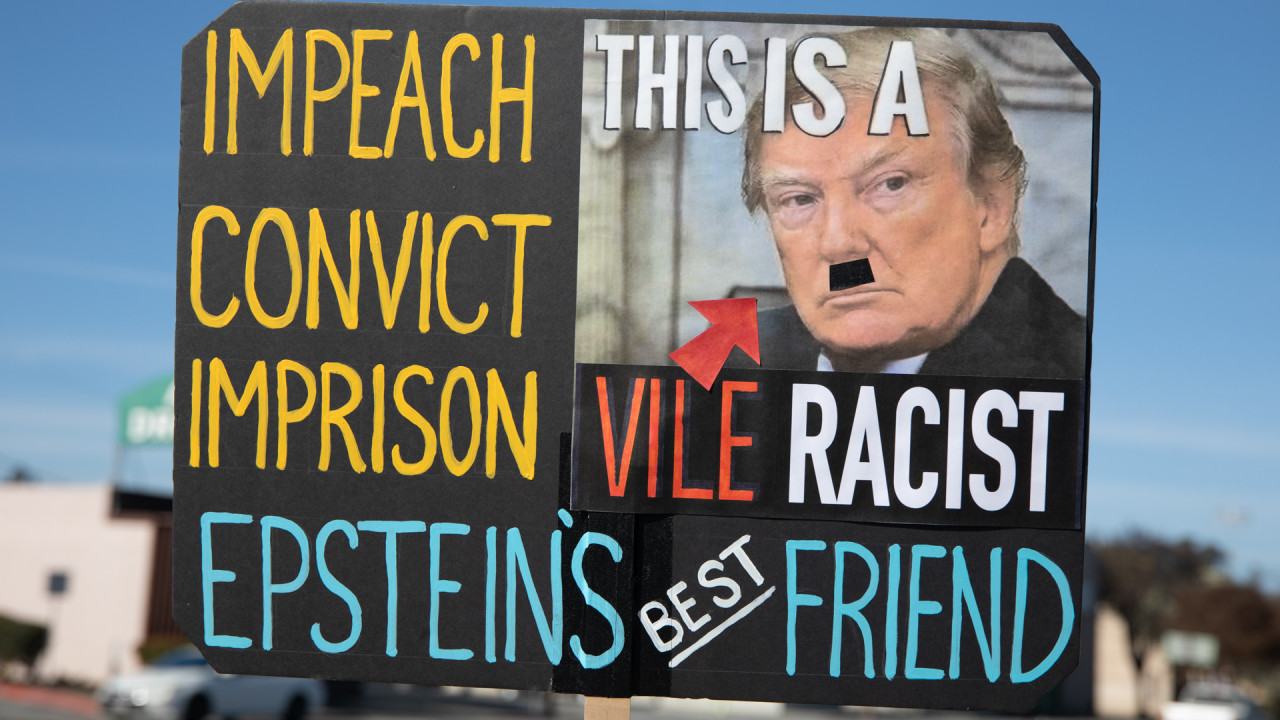 IMPEACH
CONVICT
IMPRISON
EPSTEIN'S BEST FRIEND
THIS IS A
VILE RACIST